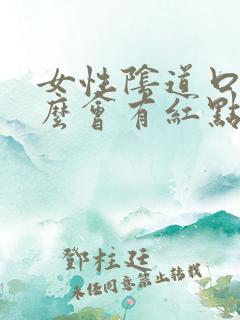 女性陰道口
麼會有紅點
鄧柱廷
未经同意禁止转载